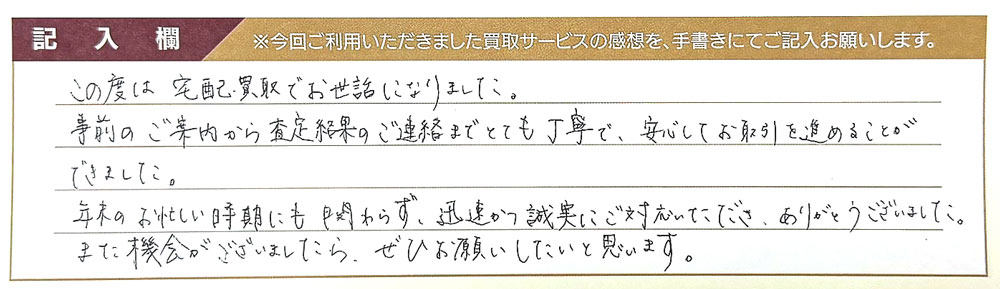 記入欄
※今回ご利用いただきました買取サービスの感想を、手書きにてご記入お願いします。
この度は 宅配買取でお世話になりました。
事前のご案内から査定結果のご連絡までとても丁寧で、安心してお取引を進めることが
できました。
年末のお忙しい時期にも関わらず、迅速かつ誠実にご対応いただき、ありがとうございました。
また機会がございましたら、ぜひお願いしたいと思います。